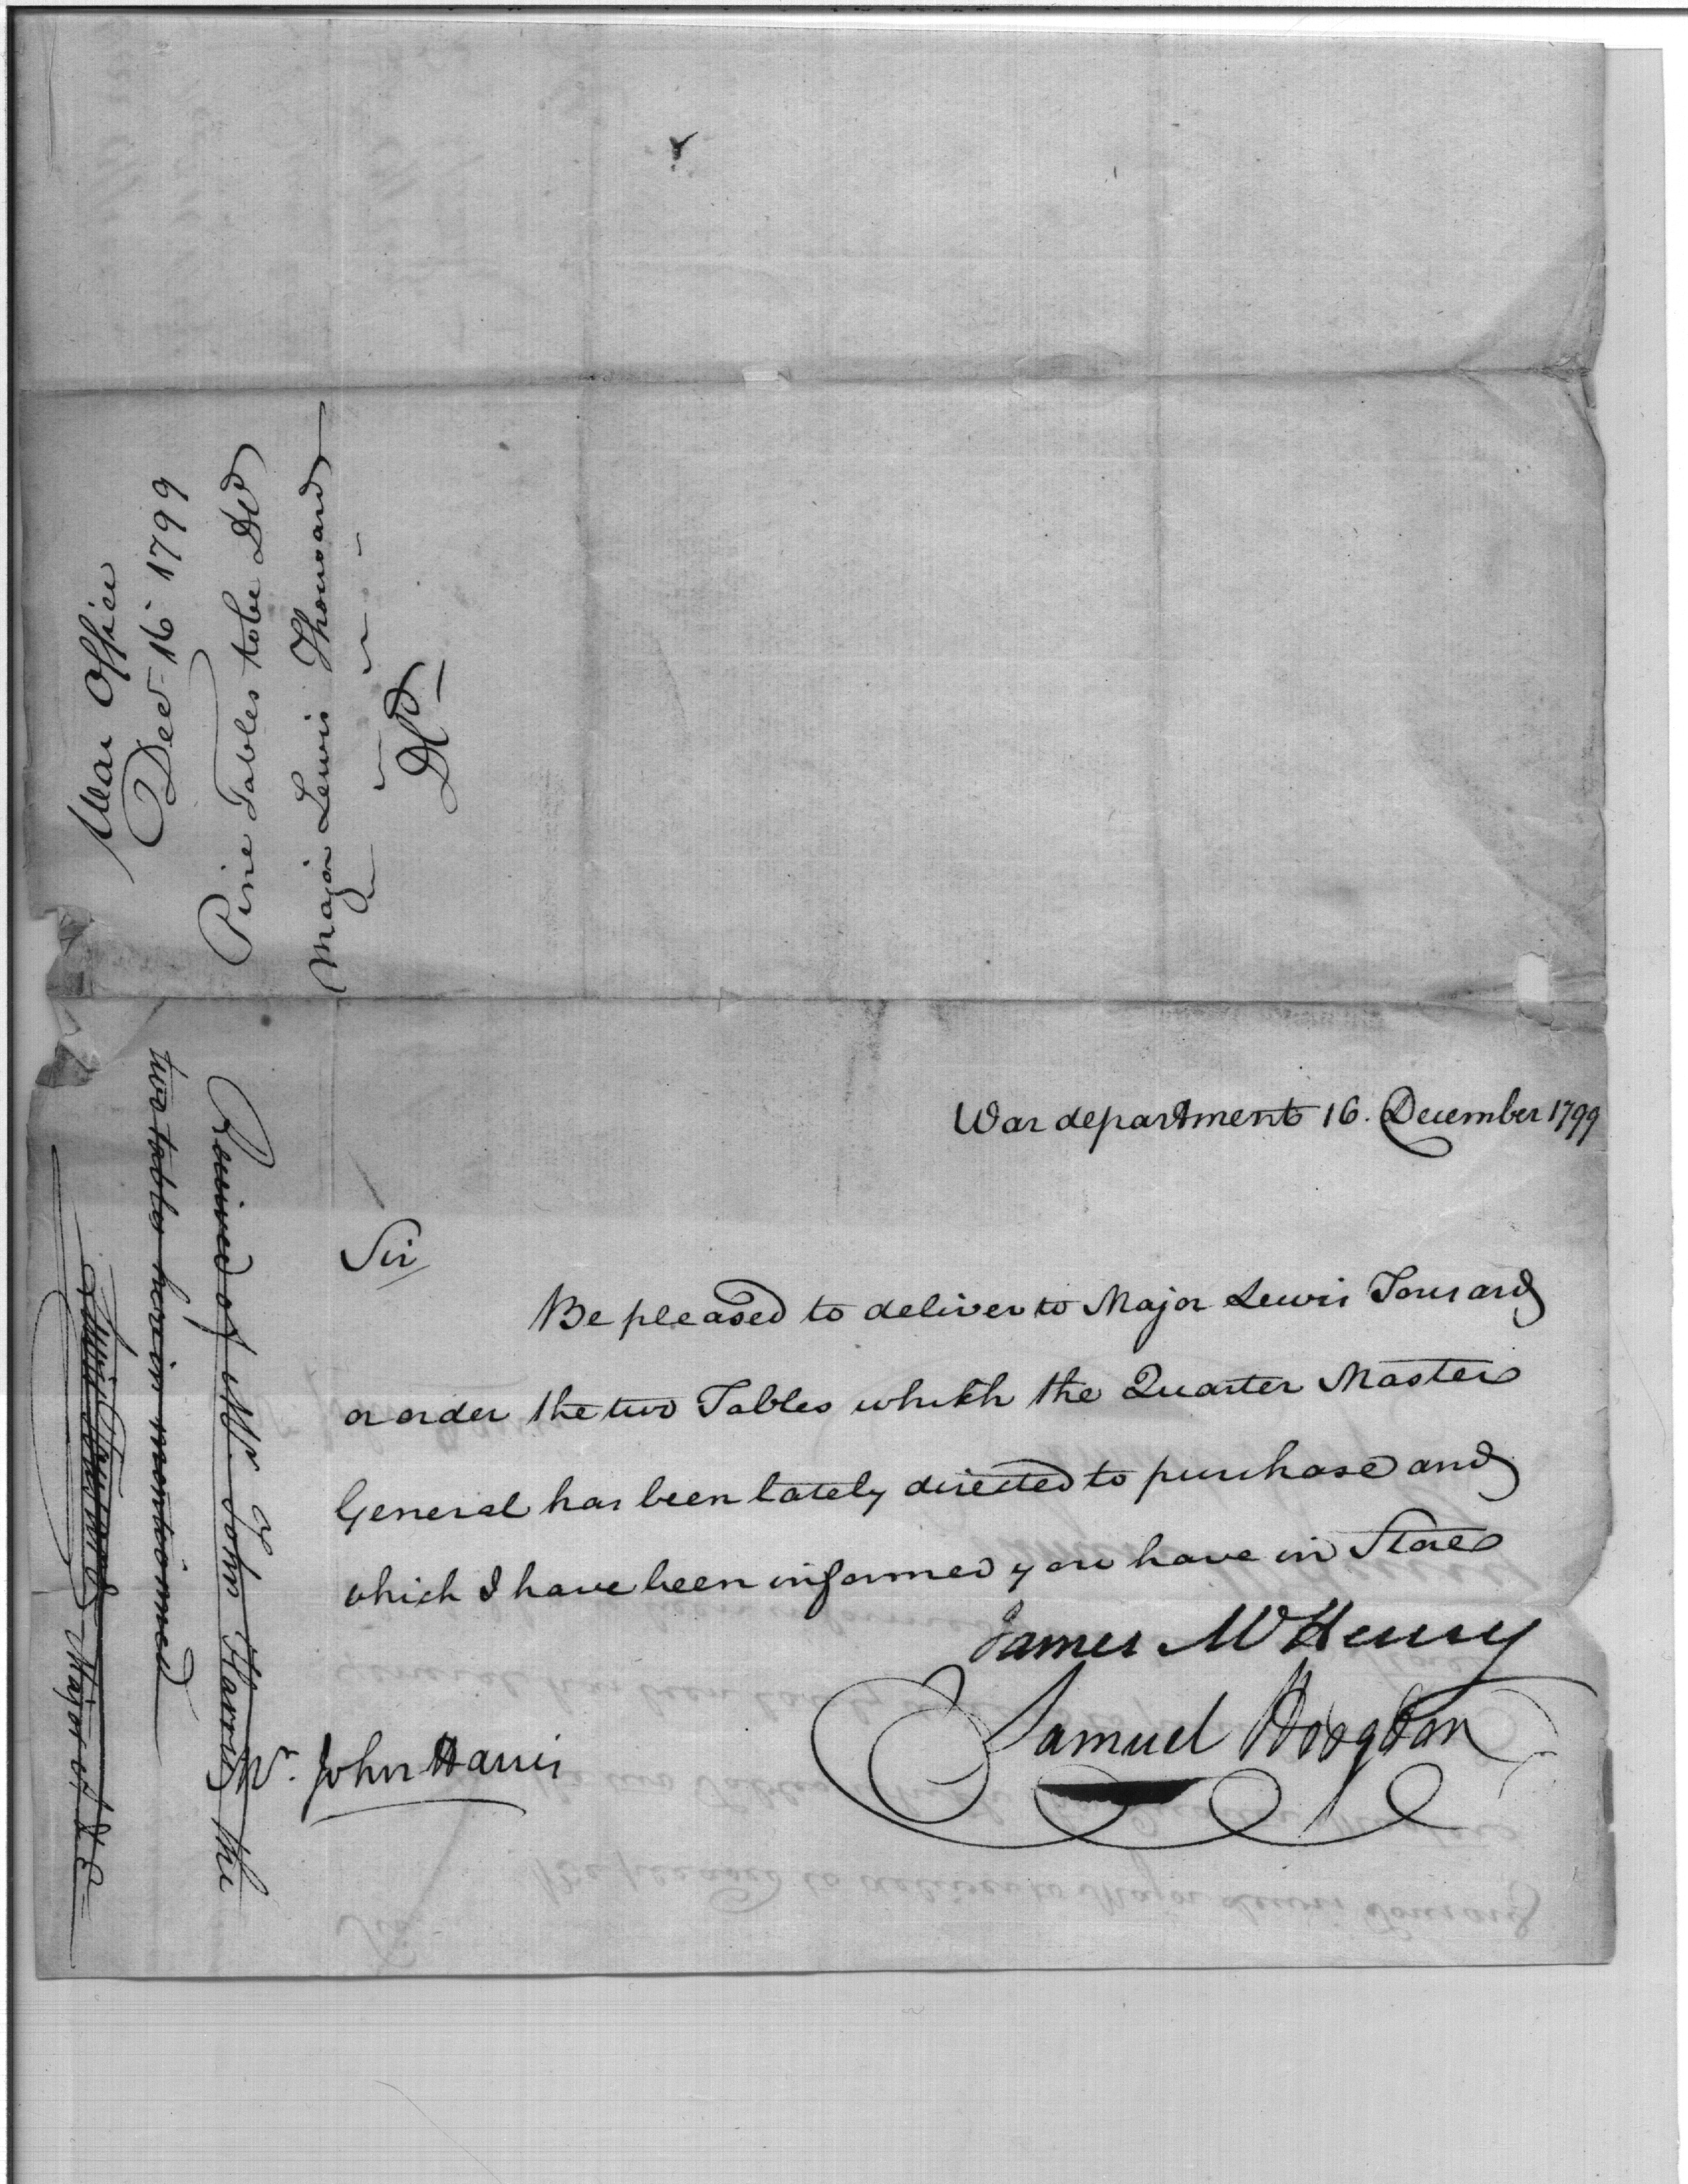 War Office
Dec 16 1799
Pine Tables to be DD
Major Lewis Thousard
DD
War department 16. December 1799
Sir
Be pleased to deliver to Major Lewis Tousard
or order the two Tables which the Quarter Master
General has been lately directed to purchase and
which I have been informed you have in Store
James McHenry
Samuel Hodgdon
Mr. John Harris
Received of Mr. John Harris the
two tables herein mentionned
Lewis Tousard Major of A. E.